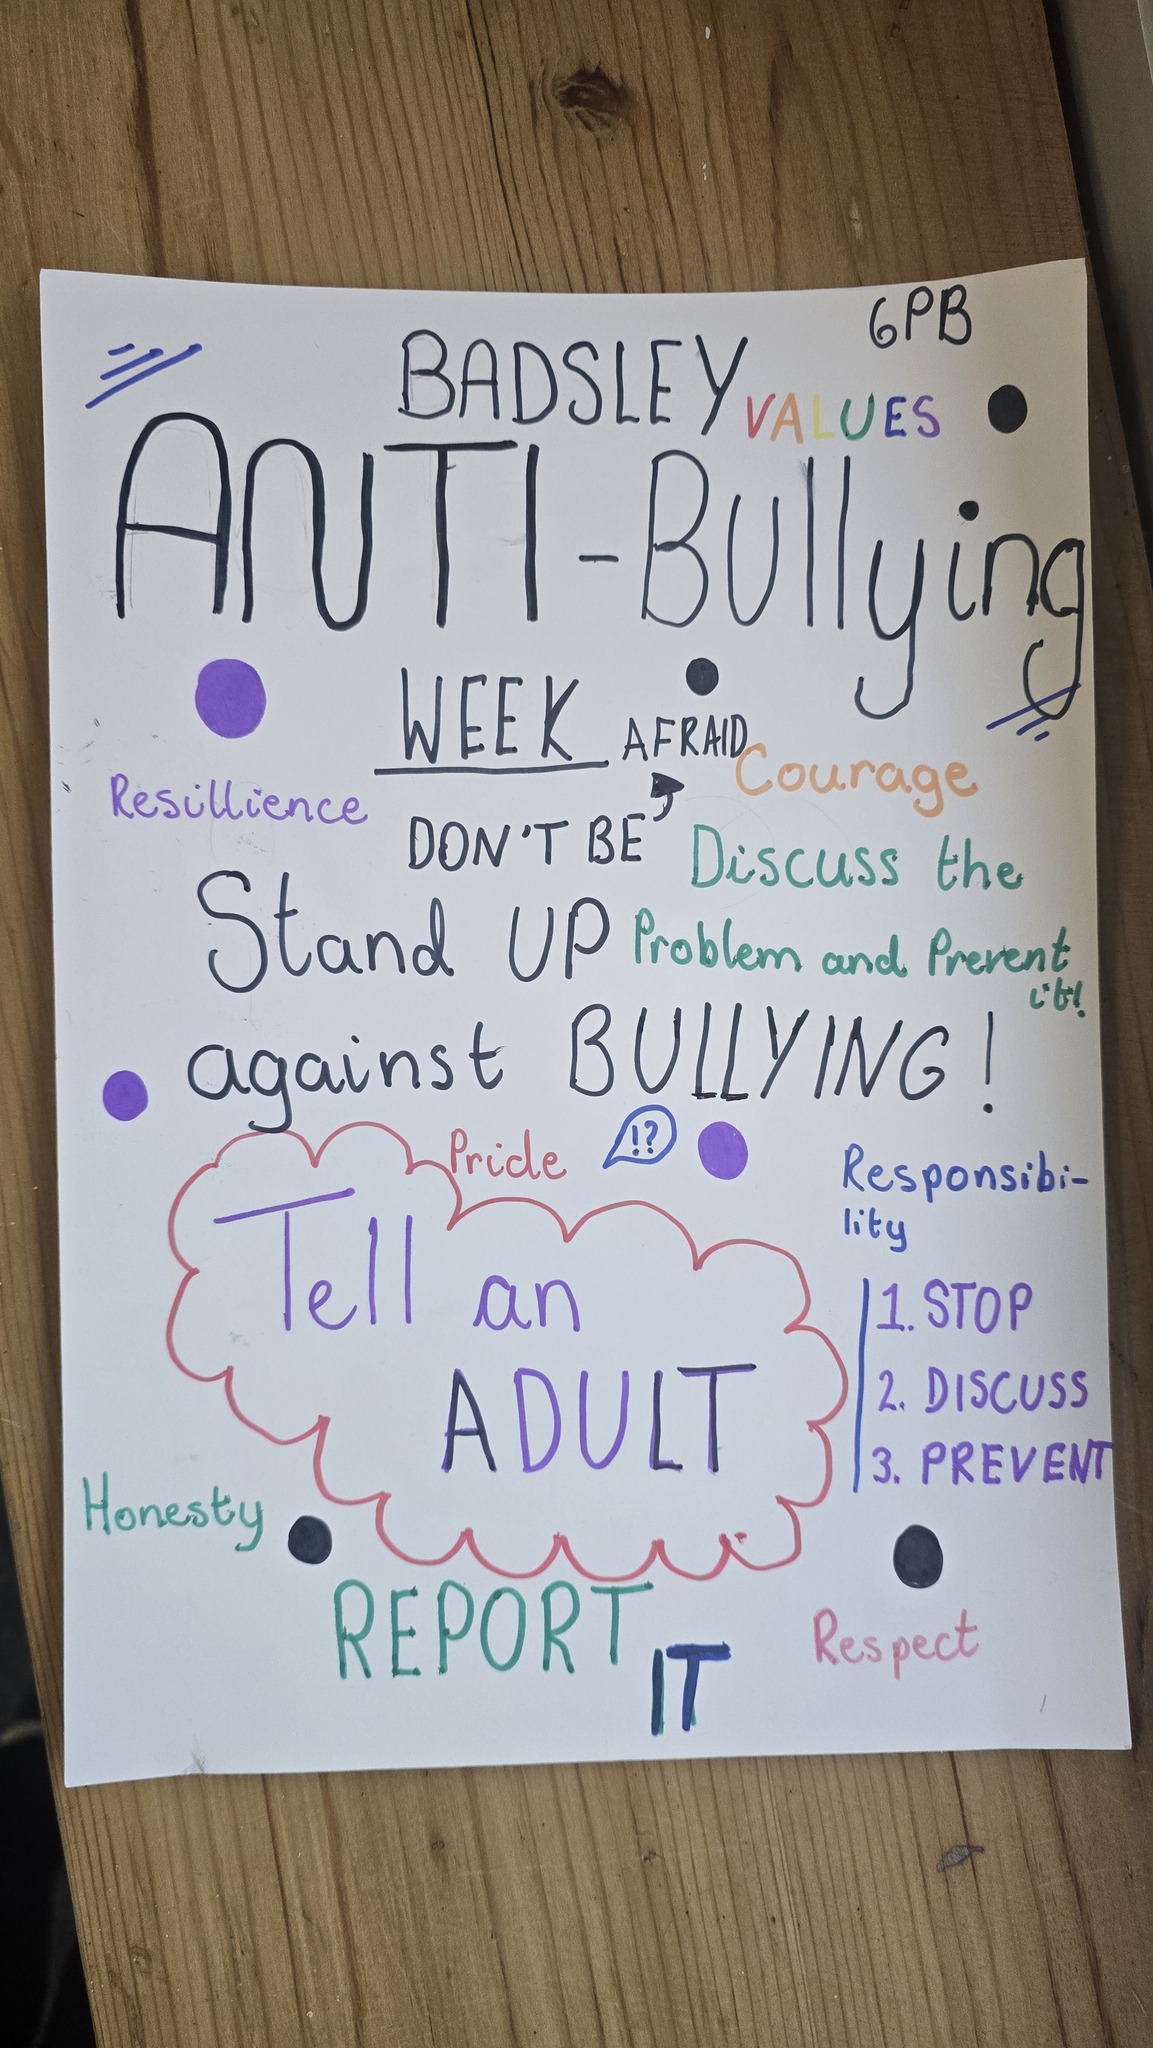 6PB
BADSLEY VALUES
ANTI-Bullying
WEEK
AFRAID
Courage
Resillience
DON'T BE
Discuss the
Stand UP
Problem and Prevent
it!
against BULLYING!
Pride
!?
Responsibi-
lity
Tell an
ADULT
1. STOP
2. DISCUSS
3. PREVENT
Honesty
REPORT
IT
Respect